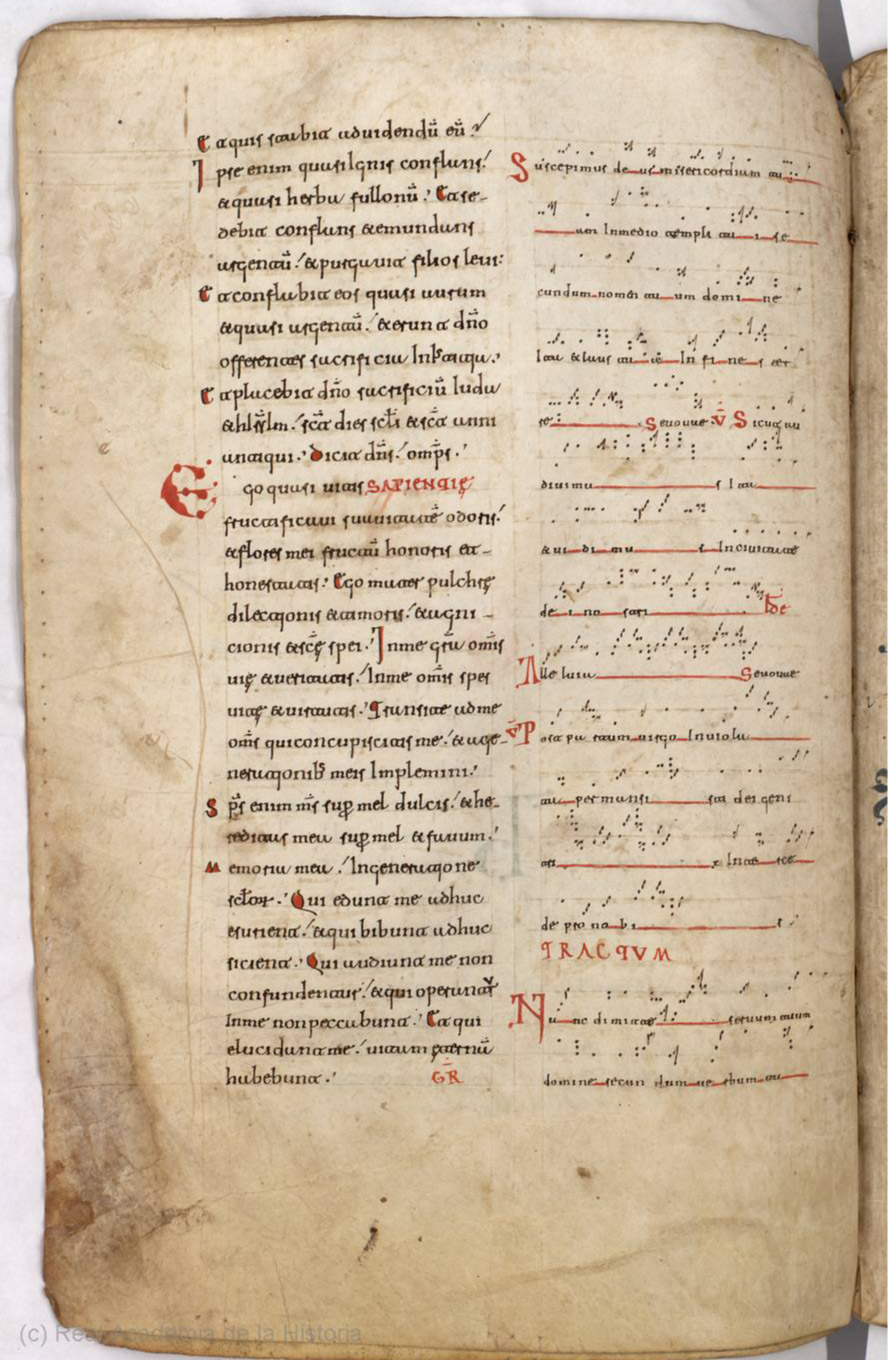 Et quis stabit ad uidendū eū
Ipse enim quasi Ignis conflans
et quasi herba fullonū. Et se-
debit conflans et emundans
argentū. et purgauit filios leui.
Et conflabit eos quasi aurum
et quasi argentū. et erunt dño
offerentes sacrificiū In
Et placebit dño sacrificiū Iuda
et hrlm. scā dies scli et scā anni
antiqui. Dicit dñs omps.
Ego quasi uitis SAPIENTIE
fructificaui suauitatē odoris
et flores mei fructū honoris et
honestatis. Ego mater pulchrę
dilectionis et timoris. et agni-
cionis et scę spei. In me gra omis
uię et ueritatis. In me omis spes
uitę et uirtutis. Transite ad me
oms qui concupiscitis me. et a ge-
nerationib meis Implemini.
Sps enim ms sup mel dulcis. et he-
reditas mea sup mel et fauum.
Memoria mea. In generatione
sclor. Qui edunt me adhuc
esurient. et qui bibunt adhuc
sicient. Qui audiunt me non
confundentur. et qui operant
In me non peccabunt. Et qui
elucidant me. uitam eternā
habebunt. GR
Suscepimus deus misericordiam tu
am In medio templi tui se
cundum nomen tuum domine
Ita et laus tua In fines ter
re Seuouae V Sicut au
diuimus Ita
et uidimus In ciuitate
dei nostri
Alleluia Seuouae
V Post partum uirgo Inuiola
ta permansisti dei geni
trix Interce
de pro nobis
TRACTVM
Nunc dimitte seruum tuum
domine secundum uerbum tu
(c) Real Academia de la Historia